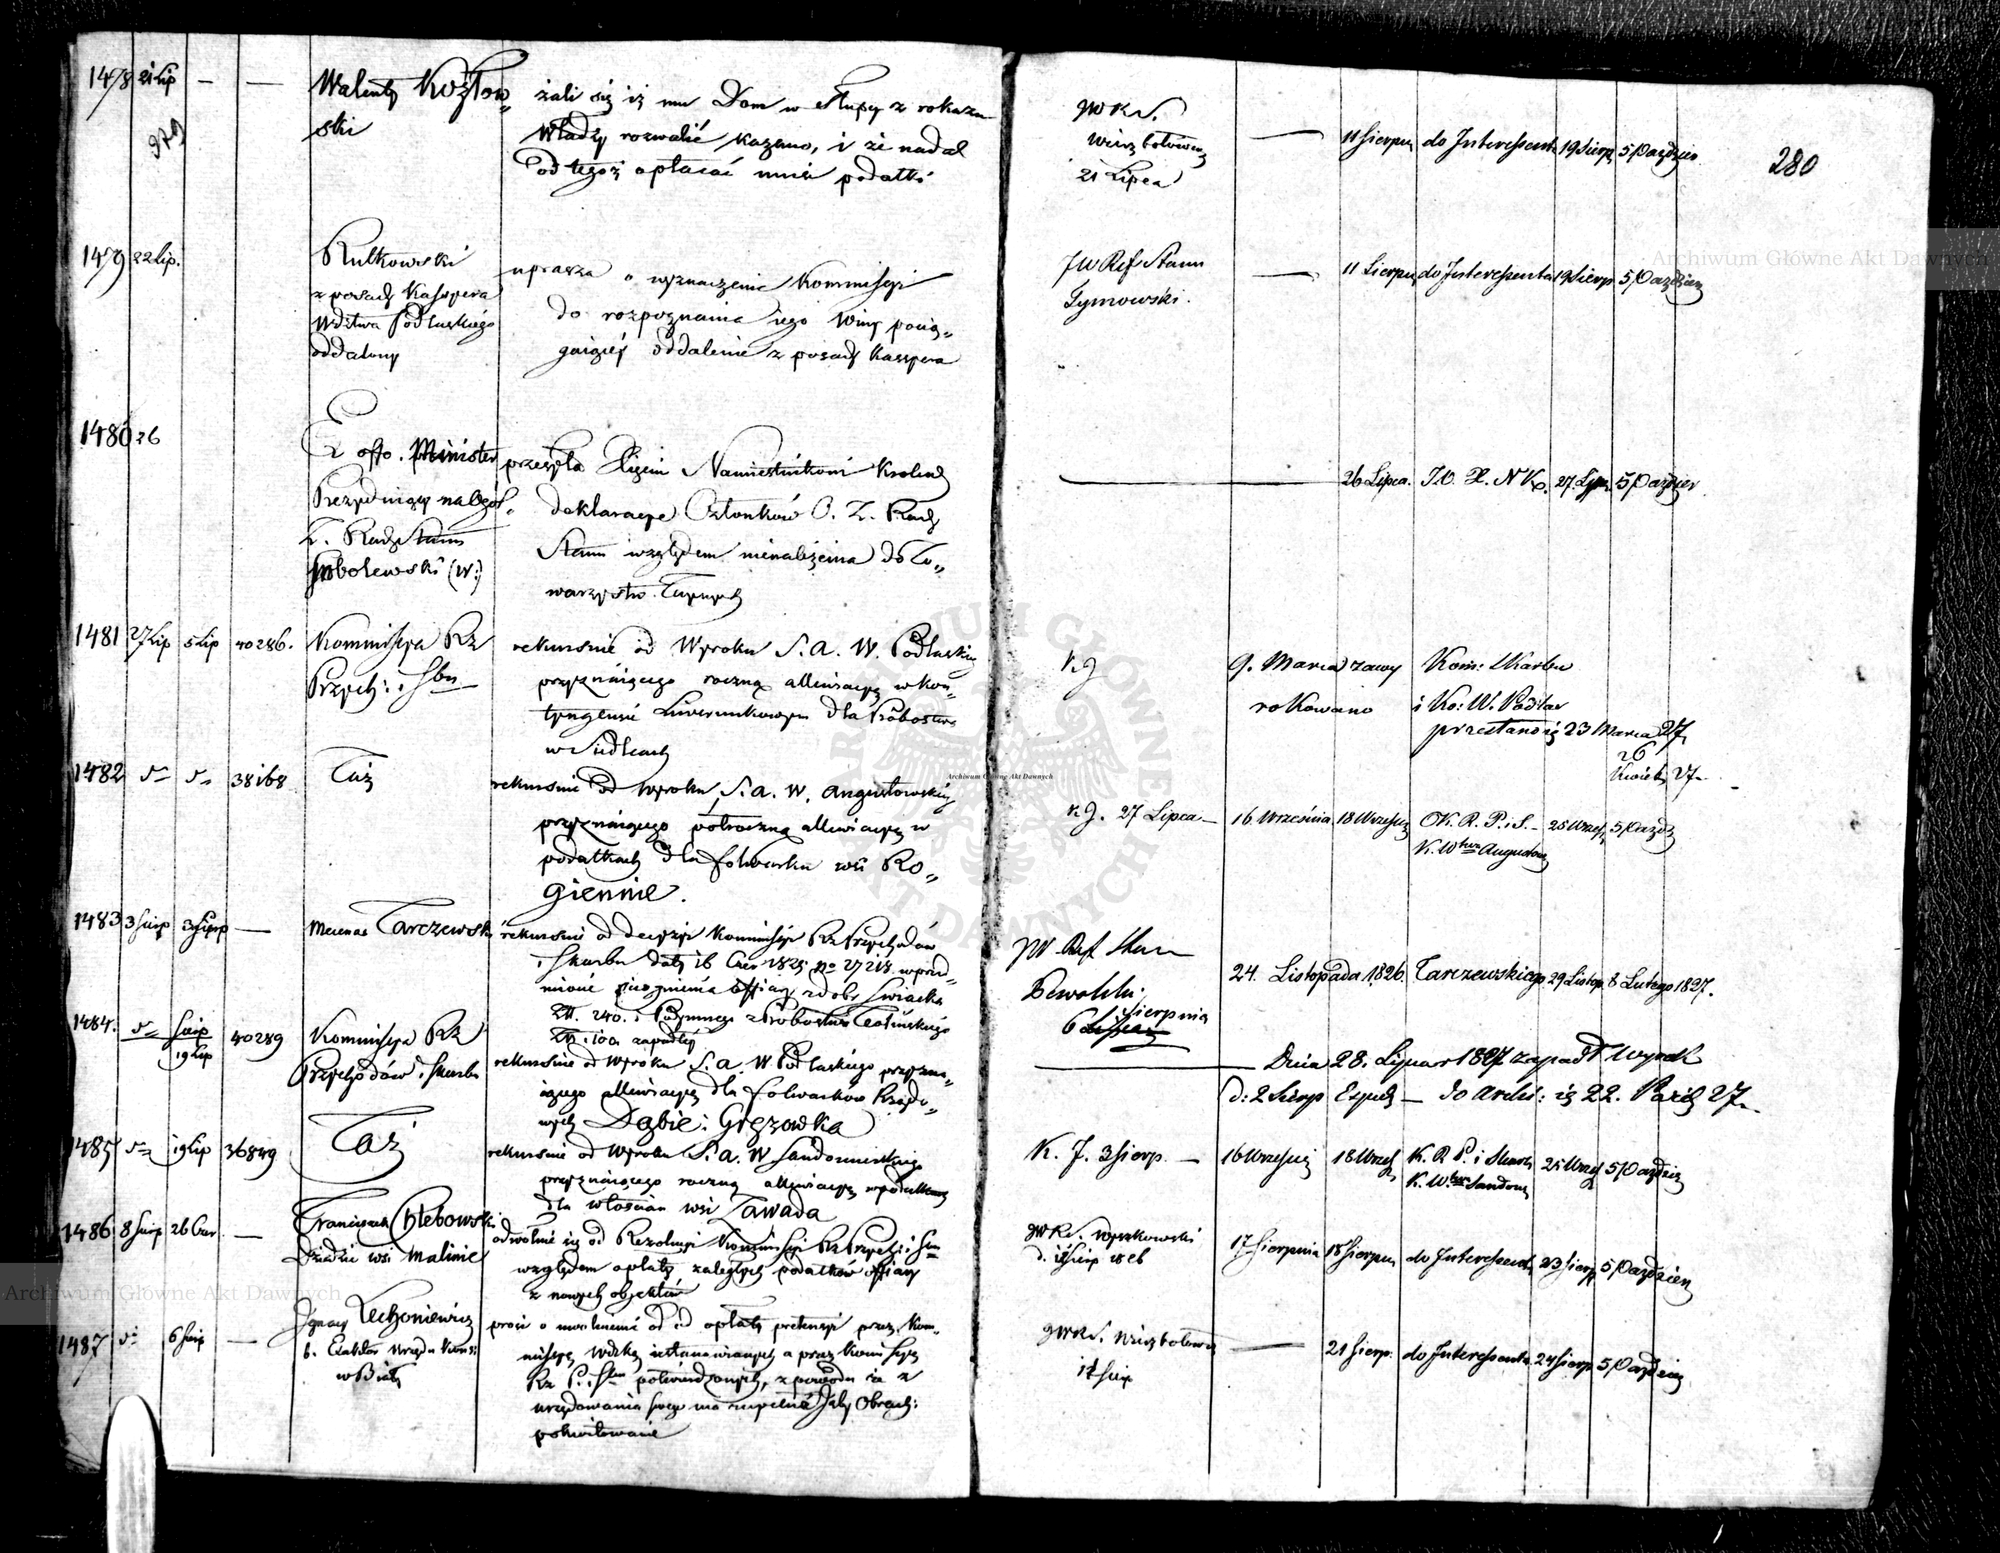 1478 21 Lip — — Walenty Kozłow„
ski
żali się iż mu Dom w Słupcy z rokazu
Władzy rozwalić kazano, i że nadal
od tegoż opłacać musi podatki
JW R S.
Wierzbołowicz
21 Lipca
— 11 Sierpn do Interessenta 19 Sierp 5 Paździer
279
280
1479 22 Lip.
Rutkowski
z posady Kassyera
Wdztwa Podlaskiego
oddalony
uprasza o wyznaczenie Kommissyi
do rozpoznania iego Winy pocią„
gaiącey oddalenie z posady Kassyera
JW Ref Stanu
Tymowski.
— 11 Sierpn do Interessenta 19 Sierp 5 Paździer
1480 26
Ex offo. Minister
Prezyduiący na Ogól.
Z. Rady Stanu
Sobolewski (W:)
przesyła Xięciu Namiestnikowi Królews
deklaracye Członków O. Z. Rady
Stanu względem nienależenia do To„
warzystw Taynych
— 26 Lipca. J.O. X. N K. 27 Lip. 5 Paździer
1481 27 Lip 5 Lip 40286.
Kommissya Rz
Przych: i Sbu
rekursuie od Wyroku S. A. W. Podlaskiey
przyznaiącego roczną allewiacyą w kon„
tyngensie Liwerunkowym dla Probostwa
w Siedlcach
K J
9. Marca zawy
rokowano
Kom: Skarbu
i Ko: W. Podlas
przesłano iż 23 Marca 27,
26
Kwiet 27
1482 5 5 38168
Taż
rekursuie od wyroku S. A. W. Augustowskiey
przyznaiącego półroczną allewiacyą w
podatkach dla folwarku wsi Ro„
giennie.
K J. 27 Lipca — 16 Września 18 Wrześ OK. R. P. i S. — 25 Wrześ 5 Paźdz
K. Wtwa Augustows
1483 3 Sierp 3 Sierp —
Mecenas Tarczewski
rekursuie od decyzyi Kommissyi Rz Przychodów
i Skarbu daty 16 Czer 1825 No 27218 w przed„
miocie zniżenia offiary z dóbr Swiacka
Zł. 240. i Podymnego z Probostwa
Zł. 100 zapadłey
JW. Ref Stanu
Sierpnia
6 Lipca
24. Listopada 1826. Tarczewskiego 29 Listop. 8 Lutego 1827.
1484. 5 Sierp
19 Lip
40289
Kommissya Rz
Przychodów i Skarbu
rekursuie od Wyroku S. A. W. Podlaskiego przyzna„
iącego allewiacyą dla folwarków Rządo„
wych Dąbie i Gręzówka
— Dnia 28. Lipca r 1827 zapadł Wyrok
d: 2 Sierp Exped — do Archi: iż 22. Paźdz 27
1485 5 19 Lip 36849
Taż
rekursuie od Wyroku S. A. W Sandomirskiego
przyznaiącego roczną allewiacyą w podatkach
dla włościan wsi Zawada
K. J. 3 Sierp. — 16 Wrześni 18 Wrześ K. R P. i Skarb 25 Wrześ 5 Paździer
K. Wtwa Sandom
1486 8 Sierp 26 Czer. —
Franciszek Chlebowski
Dziedzic wsi Malinie
odwołuie się od Rezolucyi Kommissyi Rz Przych: i Sbu
względem opłaty zaległych podatków offiary
z nowych obiektów
JW R S. Wyszkowski
17 Sierpnia 18 Sierpnia do Interessenta 23 Sierp 5 Paździer
1487 5 6 Sierp —
Ignacy Lechoniewicz
b. Exaktor Urzędu Kons:
w Biały
prosi o uwolnienie od opłaty pretensyi przez Kom„
missyą Wdzką ustanowionych a przez Kommissyą
Rz P. i Sbu potwierdzonych, z powodu że z
urzędowania swego ma zupełne Izby Obrach:
pokwitowanie
JW R S. Wierzbołowicz
— 21 Sierp. do Interessenta 24 Sierp 5 Paździer
Archiwum Główne Akt Dawnych
Archiwum Główne Akt Dawnych
Archiwum Główne Akt Dawnych
ARCHIWUM GŁÓWNE AKT DAWNYCH